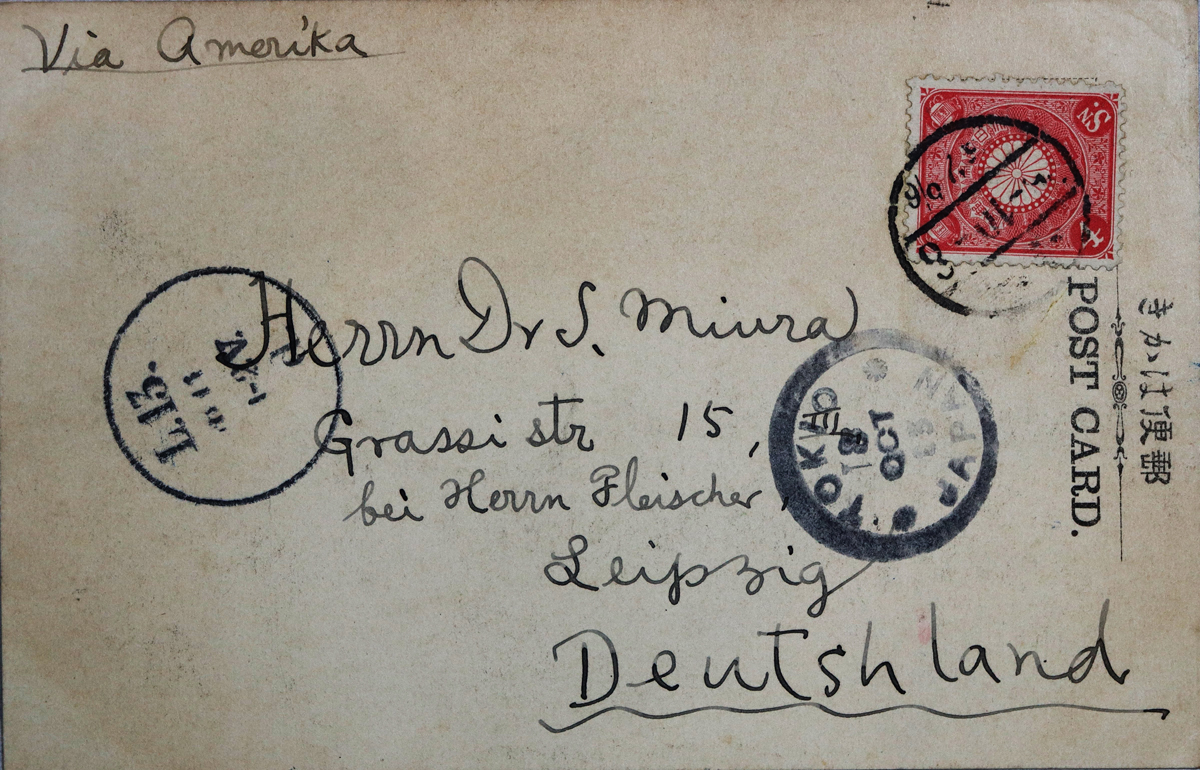 Via Amerika
Herrn Dr S. Miura
Grassi str 15,
bei Herrn Fleischer,
Leipzig
Deutshland
POST CARD.
きかは便郵
TOKIO
JAPAN
OCT
L.13.
S.N